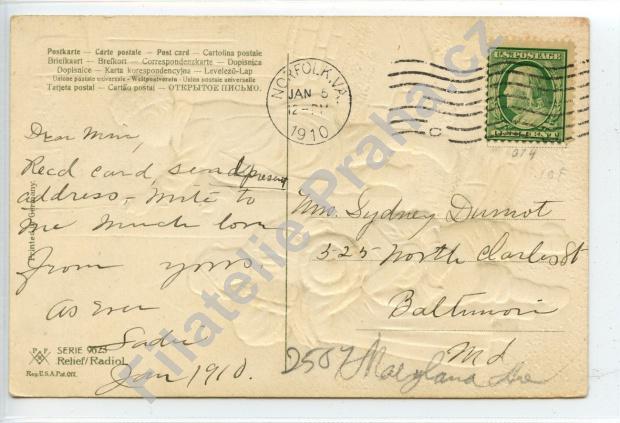 Postkarte — Carte postale — Post card — Cartolina postale
Briefkaart — Brefkort — Correspondenzkarte — Dopisnica
Dopisnice — Karta korespondencyjna — Levelező-Lap
Union postale universelle — Weltpostverein — Union postale universelle
Tarjeta postal — Cartão postal — ОТКРЫТОЕ ПИСЬМО.
NORFOLK, VA.
JAN 5
12—PM
1910
U.S. POSTAGE
Dear Mme,
Recd card, send present
address - write to
me much love
from yours.
as ever
Sadie
Jan 1910.
Mrs. Sydney Dumot
325 North Charles St
Baltimore
Md.
2507 Maryland Ave
Printed in Germany.
P. F.
SERIE 9623
Relief/Radiol
Reg. U.S.A. Pat. Off.
Filatelie-Praha.cz